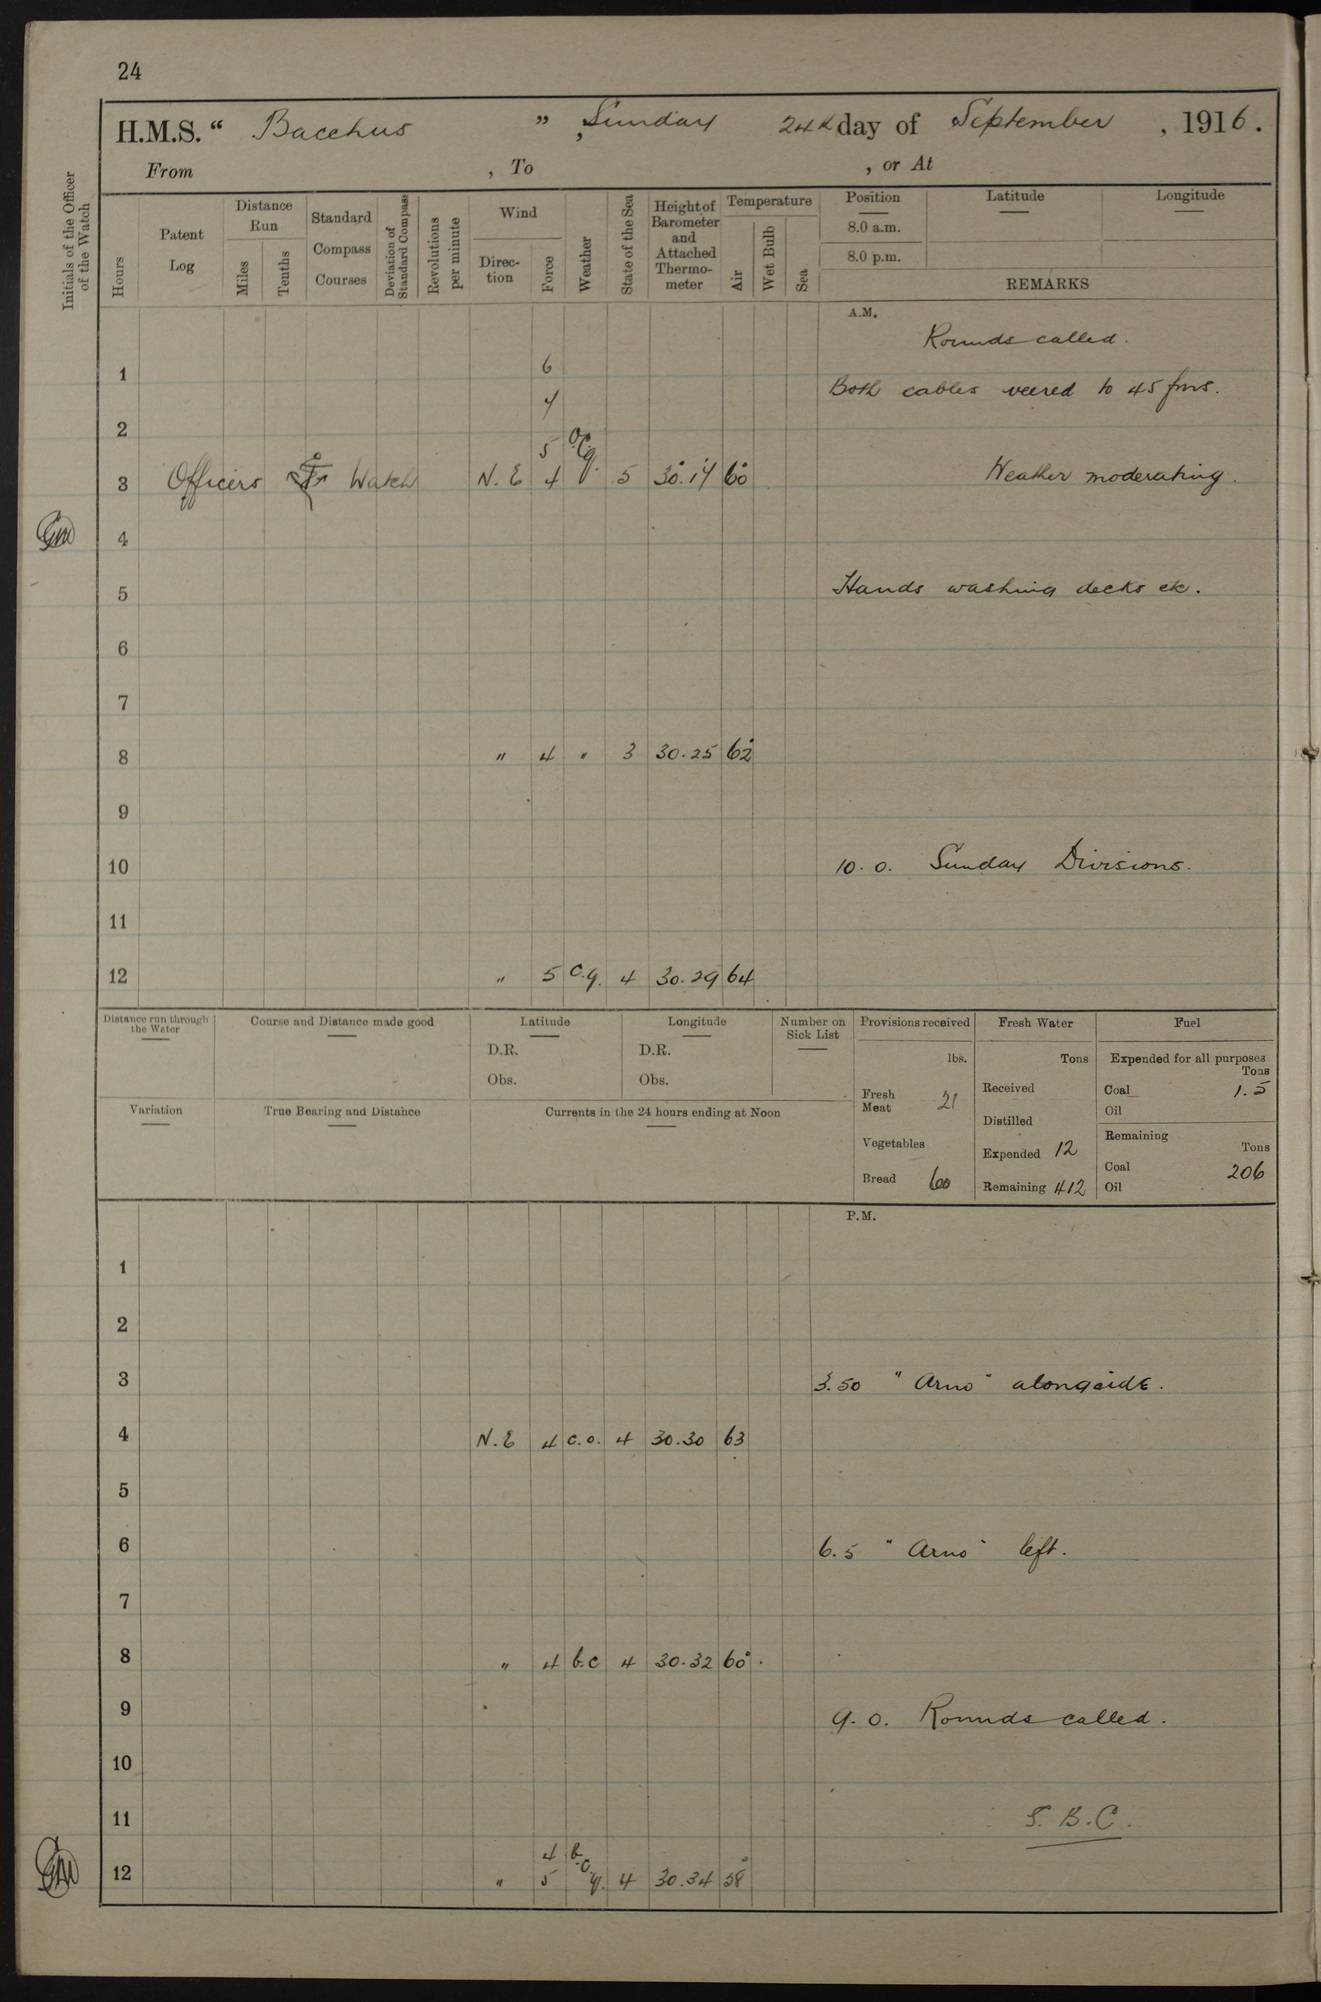 24
H.M.S. " Bacchus ", Sunday 24th day of September, 1916.
From , To , or At
Initials of the Officer of the Watch
Hours
Patent Log
Distance Run
Miles
Tenths
Standard Compass Courses
Deviation of Standard Compass
Revolutions per minute
Wind
Direction
Force
Weather
State of the Sea
Height of Barometer and Attached Thermometer
Temperature
Air
Wet Bulb
Sea
Position
8.0 a.m.
8.0 p.m.
Latitude
Longitude
REMARKS
A.M.
Rounds called.
1 6
Both cables veered to 45 fms.
2
5 o.c.q.
3 Officers Watch N.E 4 5 30.14 60° Weather moderating.
4
5 Hands washing decks etc.
6
7
8 " 4 " 3 30.25 62°
9
10 10.0. Sunday Divisions.
11
12 " 5 c.q. 4 30.29 64
Distance run through the Water
Course and Distance made good
Latitude
D.R.
Obs.
Longitude
D.R.
Obs.
Number on Sick List
Provisions received
lbs.
Fresh Meat 21
Vegetables
Bread 60
Fresh Water
Tons
Received
Distilled
Expended 12
Remaining 412
Fuel
Expended for all purposes
Tons
Coal 1.5
Oil
Remaining
Tons
Coal 206
Oil
Variation
True Bearing and Distance
Currents in the 24 hours ending at Noon
P.M.
1
2
3 3.50 "Arno" alongside.
4 N.E 4 c.o. 4 30.30 63
5
6 6.5 "Arno" left.
7
8 " 4 b.c 4 30.32 60°.
9 9.0. Rounds called.
10
11 S.B.C.
4
12 " 5 b.c.q. 4 30.34 58°